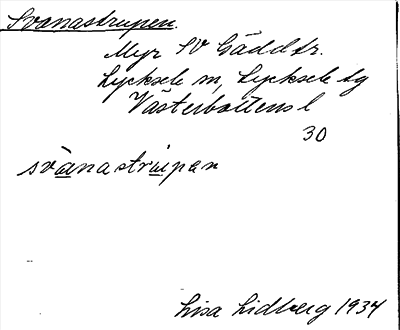 Svanastrupen
Myr SV Gäddtr.
Lycksele sn, Lycksele lg
Västerbottens l
30
svànastrupan
Lisa Lidberg 1934